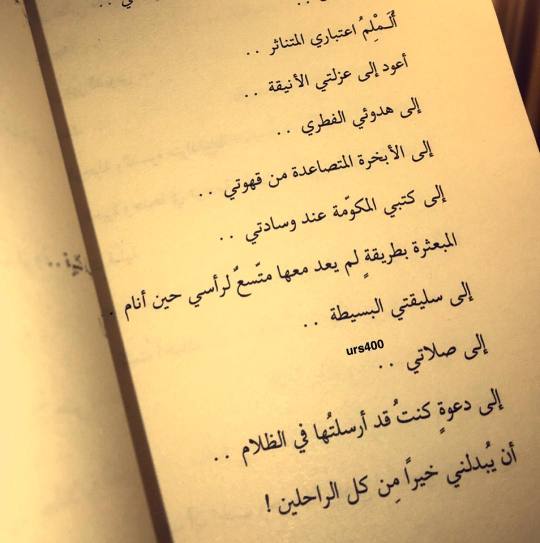 أُلَـمْلِمُ اعتباري المتناثر ..
أعود إلى عزلتي الأنيقة ..
إلى هدوئي الفطري ..
إلى الأبخرة المتصاعدة من قهوتي ..
إلى كتبي المكوّمة عند وسادتي ..
المبعثرة بطريقةٍ لم يعد معها متّسعٌ لرأسي حين أنام .
إلى سليقتي البسيطة ..
urs400
إلى صلاتي ..
إلى دعوةٍ كنتُ قد أرسلتُها في الظلام ..
أن يُبدلني خيراً مِن كل الراحلين !